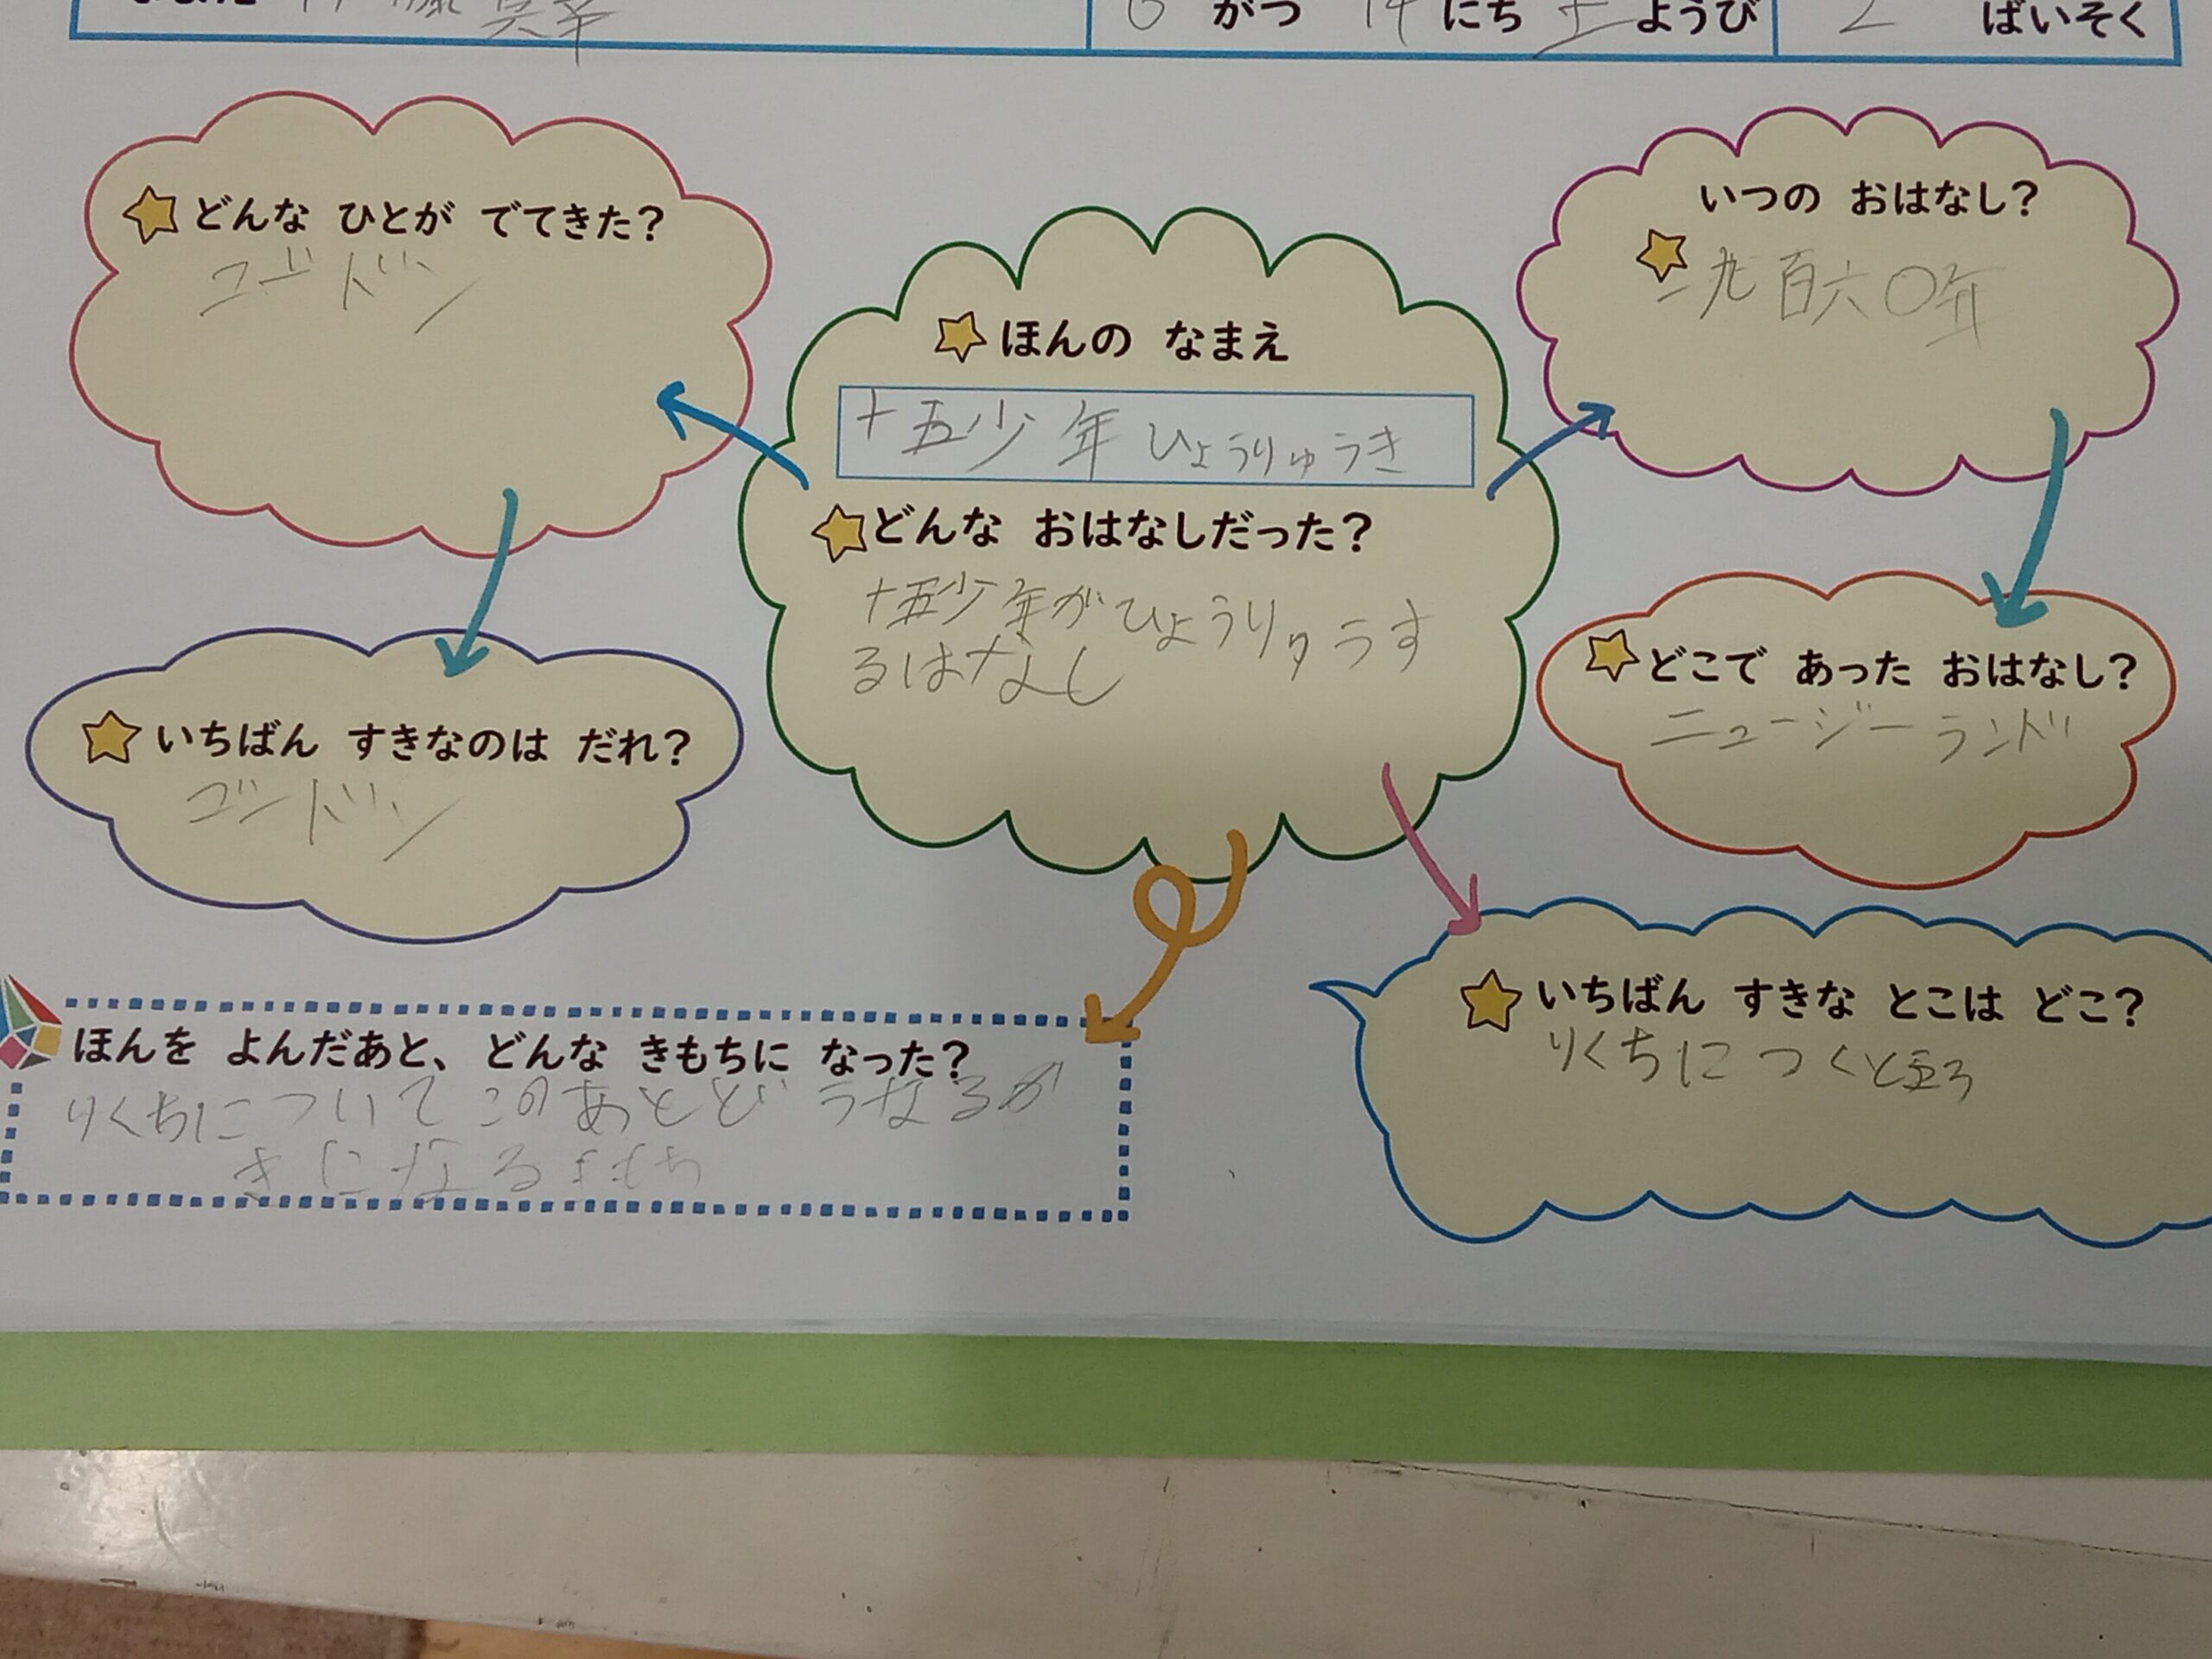 6 がつ 14 にち 土 ようび
2 ばいそく
どんな ひとが でてきた?
ゴードン
いちばん すきなのは だれ?
ゴードン
ほんの なまえ
十五少年ひょうりゅうき
どんな おはなしだった?
十五少年がひょうりゅうす
るはなし
いつの おはなし?
一九百六〇年
どこで あった おはなし?
ニュージーランド
いちばん すきな とこは どこ?
りくちにつくところ
ほんを よんだあと、どんな きもちに なった?
りくちについてこのあとどうなるか
きになるきもち